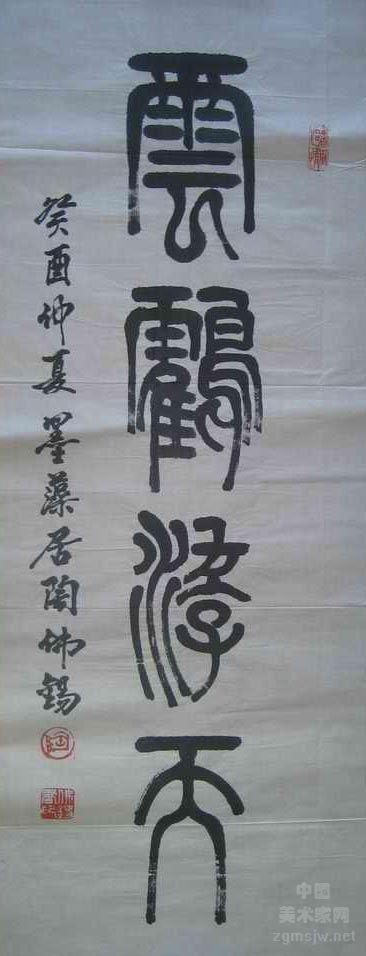 雲鶴游天
癸酉仲夏墨藻居陶佛錫
中国
美术家网
zgmsjw.net